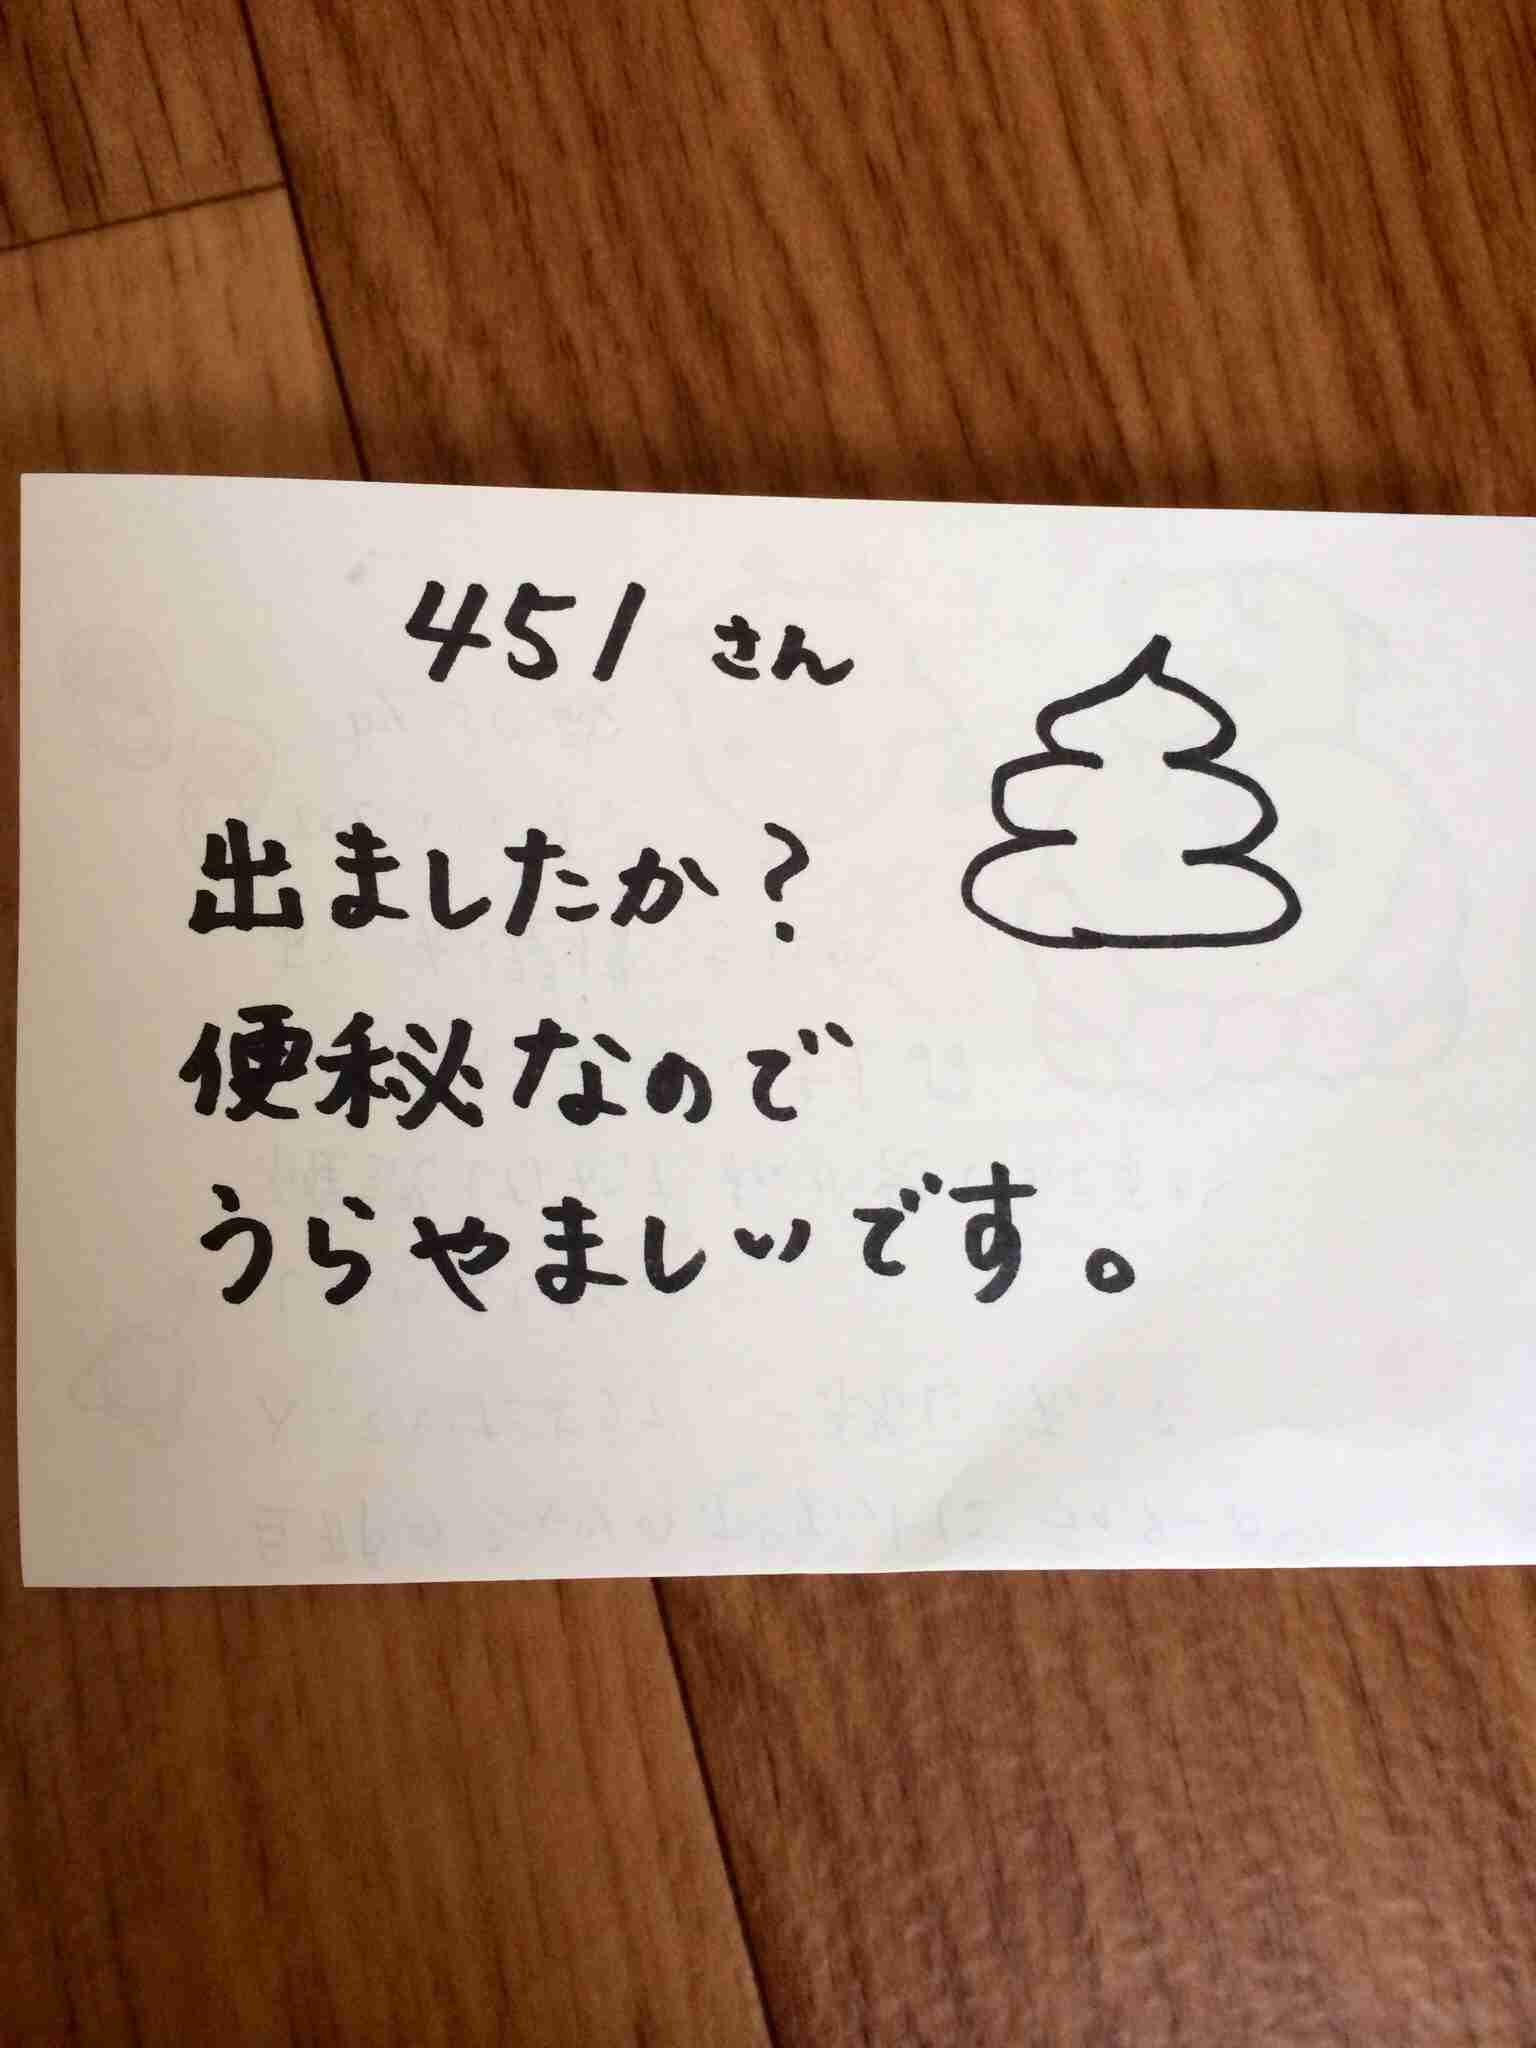 451 さん
出ましたか?
便秘なので
うらやましいです。